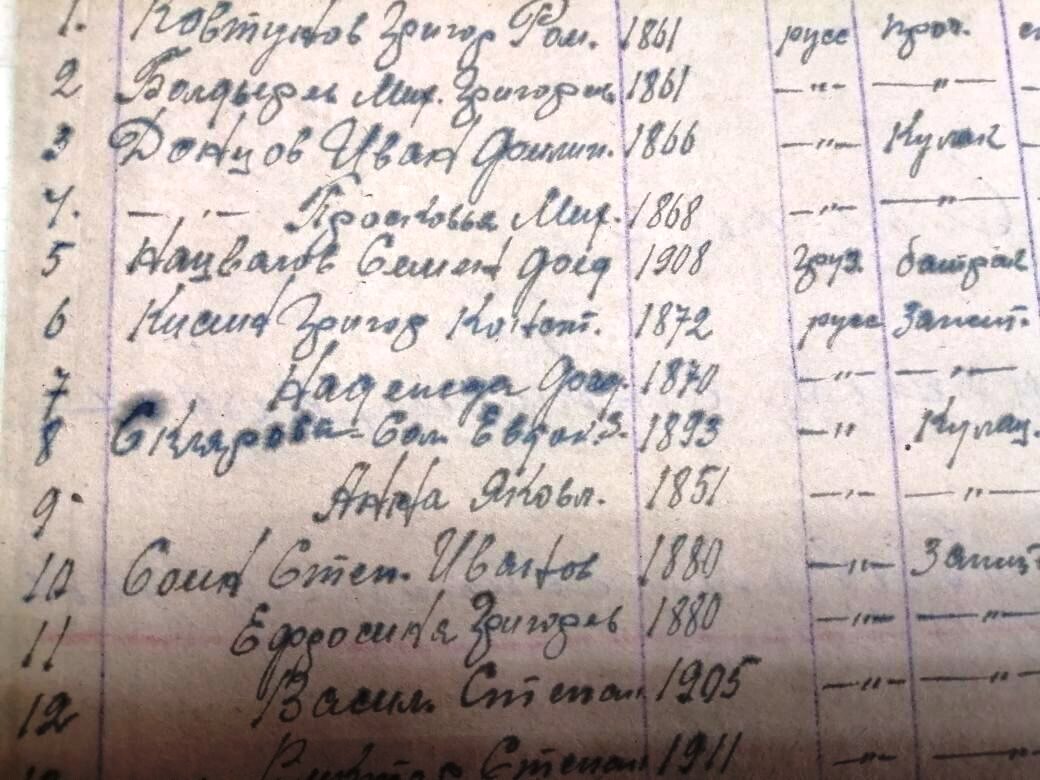 1. Ковтунов Григор Ром. 1861 русс проч.
2 Болдырев Мих. Григорев 1861 —"— —"—
3 Донцов Иван Филип. 1866 —"— Кулак
4. —"— Просковья Мих. 1868 —"— —"—
5 Нацвалов Семен Фед 1908 груз. батрак
6 Кисин Григор Констт. 1872 русс Зажит.
7 Надежда Фед. 1870 —"— —"—
8 Склярова Сол. 1893 —"— Кулац.
9. Анна Яковл. 1851 —"— —"—
10 Сомн Степ. Иванов 1880 —"— Зажит
11 Ефросиня Григорев 1880 —"— —"—
12 Васил. Степан. 1905 —"— —"—
Степан. 1911 —"—